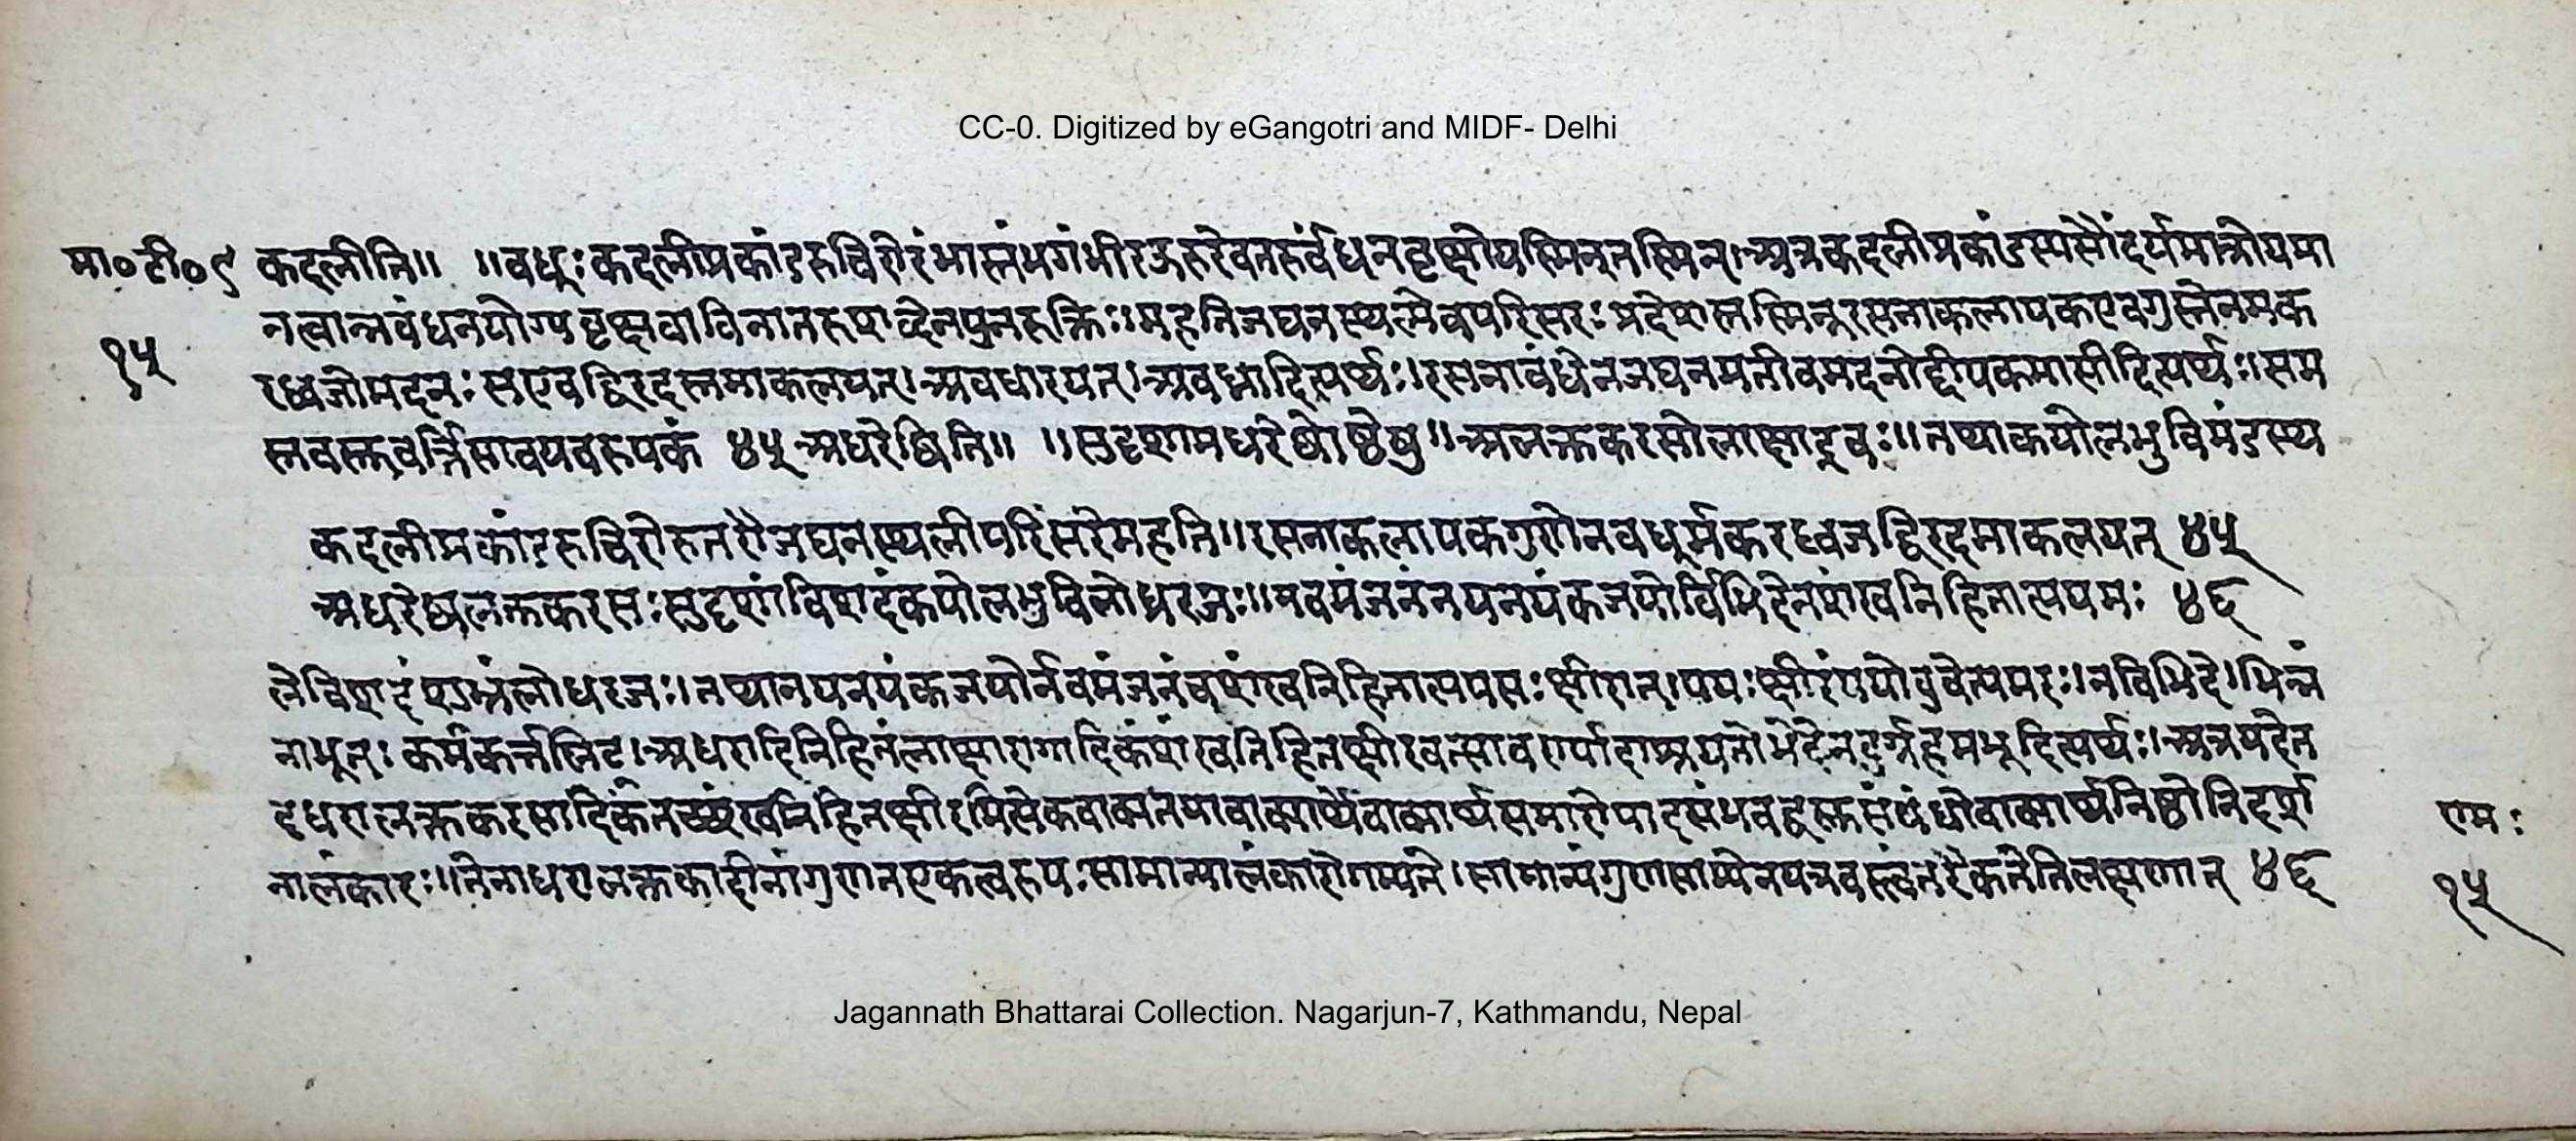 CC-0. Digitized by eGangotri and MIDF- Delhi
मा०टी०९ कदलीति॥ ॥वधूः कदलीप्रकांडरुचिरोरंभास्तंभगंभीरऊरुरेवतरुर्वंधनवृक्षोयस्मिन्तस्मिन्।अत्रकदलीप्रकांडस्यसौंदर्यमात्रोपमा
१५
नत्वान्नवंधनयोग्यवृक्षवाचिनातरुशब्देनपुनरुक्तिः॥महतिजघनस्थल्मेवपरिसरः प्रदेशस्तस्मिन्रसनाकलापकएवगुस्तेनमक
रध्वजोमदनः सएवद्विरदस्तमाकलयत्।अवधारयत्।अवध्नादित्यर्थः॥रसनावंधेनजघनमतीवमदनोद्दीपकमासीदित्यर्थः॥सम
स्तवस्तुवर्त्तिसावयवरुपकं ४५ अधरेष्विति॥ ॥सुदृशामधरेष्वोष्ठेषु॥अलक्तकरसोलाक्षाद्रवः॥तथाकपोलभुविमंडस्थ
कदलीप्रकांडरुचिरोरुतरौजघनस्थलीपरिसरेमहति॥रसनाकलापकगुणेनवधूर्मकरध्वजद्विरदमाकलयत् ४५
अधरेष्वलक्तकरसःसुदृशांविशदंकपोलभुविलोध्ररजः॥नवमंजनंनयनपंकजयोर्विभिदेनशंखनिहितात्पयसः ४६
लेविशदंशुभ्रंलोध्ररजः॥तथानयनपंकजयोर्नवमंजनंचशंखनिहितात्पयसःक्षीरात्।पयःक्षीरंपयोंवुचेत्यमरः॥नविभिदे।भिन्नं
नाभूत्। कर्मकर्त्तरिलिट्।अधरादिनिहितंलाक्षारागादिकंशंखनिहितक्षीरवत्सावर्ण्यादाश्रयतोभेदेनदुर्ग्रहमभूदित्यर्थः।अत्रपदेन
दधरालक्तकरसादिकंतच्छंखनिहितक्षीरमित्येकवाक्यतयावाक्यार्थेवाक्यार्थसमारोपादसंभवद्वस्तुसंवंधोवाक्यार्थनिष्ठोनिदर्श
नालंकारः॥तेनाधरालक्तकादीनांगुणतएकत्वरुपःसामान्यालंकारोगम्यते।सामान्यंगुणसाम्येनयत्रवस्त्वंतरैकतेतिलक्षणात् ४६
राम:
१५
Jagannath Bhattarai Collection. Nagarjun-7, Kathmandu, Nepal